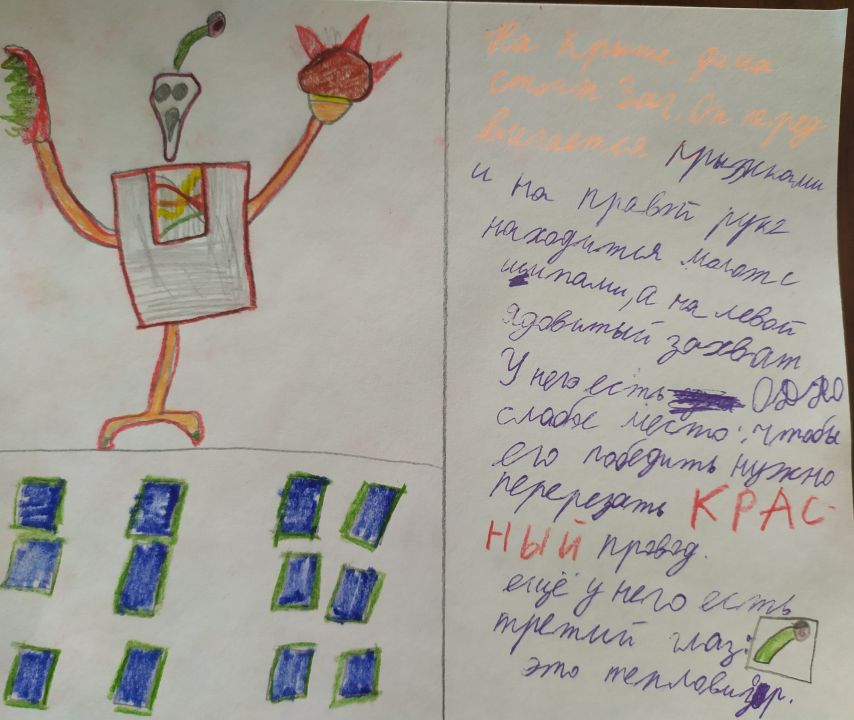 На крыше дома
стоит Заг. Он перед-
вигается прыжками
и на правой руке
находится молот с
шипами, а на левой
ядовитый захват
У него есть ОДНО
слабое место: чтобы
его победить нужно
перерезать КРАС-
НЫЙ провод.
ещё у него есть
третий глаз:
это тепловизор.